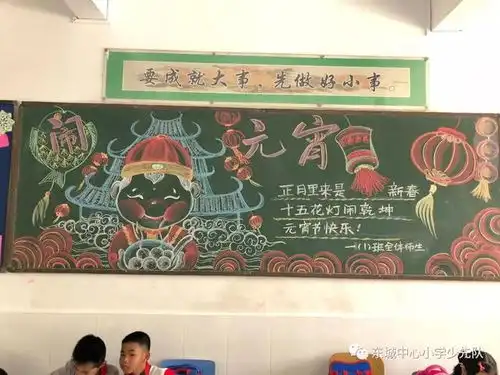 要成就大事，先做好小事。
闹
元宵
正月里来是 新春
十五花灯闹乾坤
元宵节快乐！
一(1)班全体师生
东城中心小学少先队